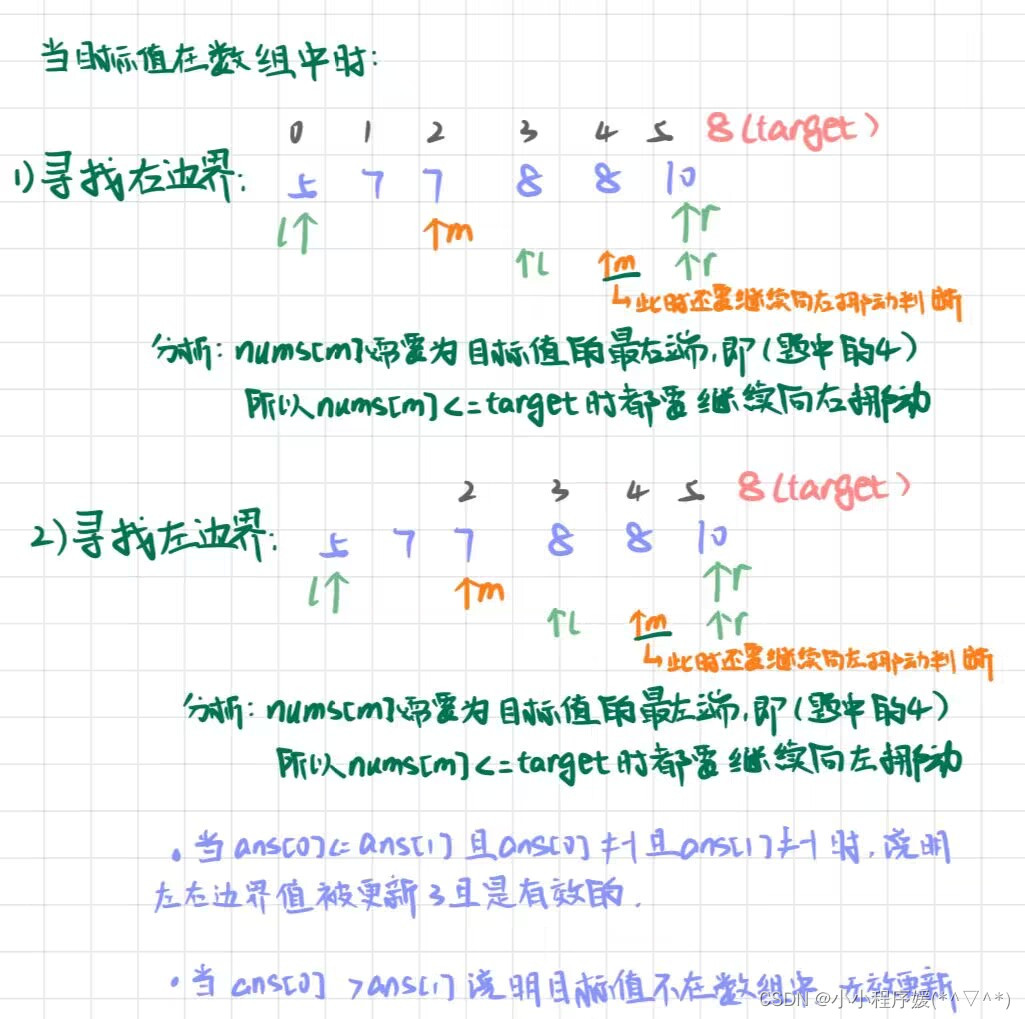 当目标值在数组中时:
0 1 2 3 4 5 8(target)
1)寻找右边界: 5 7 7 8 8 10
l↑ ↑m ↑r
↑l ↑m ↑r
↳此时还要继续向右挪动判断
分析: nums[m]需要为目标值的最右端,即(题中的4)
所以nums[m]<=target时都要继续向右挪动
2 3 4 5 8(target)
2)寻找左边界: 5 7 7 8 8 10
l↑ ↑m ↑r
↑l ↑m ↑r
↳此时还要继续向左挪动判断
分析: nums[m]需要为目标值的最左端,即(题中的4)
所以nums[m]<=target时都要继续向左挪动
• 当ans[0]<=ans[1]且ans[0]≠-1且ans[1]≠-1时,说明
左右边界值被更新了且是有效的.
• 当ans[0]>ans[1]说明目标值不在数组中 无效更新
CSDN @小小程序媛(*^▽^*)